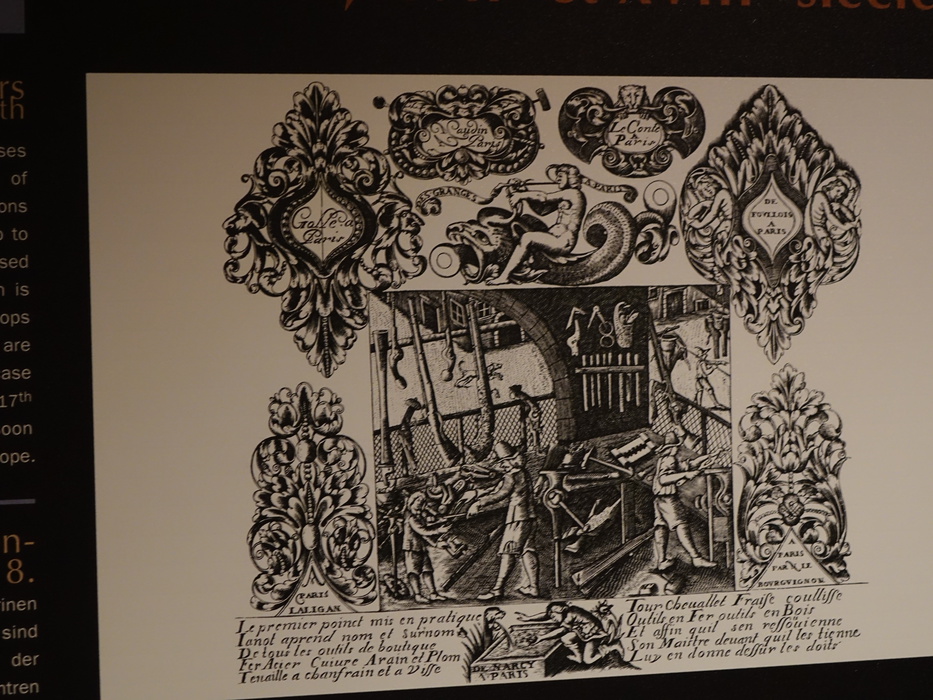 & XVIII siècle
rs
th
ses
of
ons
p to
sed
n is
ops
are
ase
17th
oon
ope.
n-
8.
rinen
sind
der
ntren
Gaudin
Paris
Le Conte
A
Paris
DES GRANGES A PARIS
a
Paris
DE
FOVLLOIS
A PARIS
PARIS
LALIGAN
PARIS
PAR N LE
BOURGVIGNON
Le premier poinct mis en pratique
Ianot aprend nom et surnom
De tous les outils de boutique
Fer Acier Cuiure Arain et Plom
Tenaille a chanfrain et a Visse
DE NARCY
A PARIS
Tour Cheuallet Fraise coullisse
Outils en Fer outils en Bois
Et affin quil sen ressouuienne
Son Maitre deuant quil les tienne
Luy en donne dessur les doits